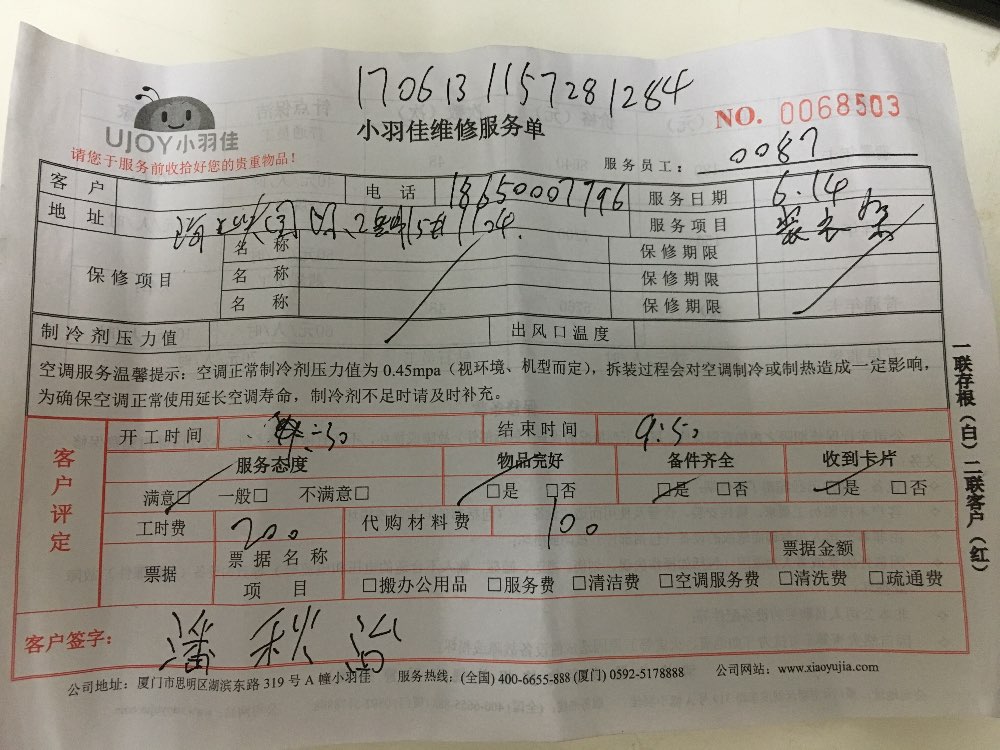 1706131157281284
UJOY小羽佳
小羽佳维修服务单
NO. 0068503
请您于服务前收拾好您的贵重物品！
服务员工： 0087
客 户 电 话 18650007796 服务日期 6.14
地 址 服务项目
保修项目 名 称 保修期限
名 称 保修期限
名 称 保修期限
制冷剂压力值 出风口温度
空调服务温馨提示：空调正常制冷剂压力值为 0.45mpa（视环境、机型而定），拆装过程会对空调制冷或制热造成一定影响，
为确保空调正常使用延长空调寿命，制冷剂不足时请及时补充。
客户评定
开工时间 :30 结束时间 9:50
服务态度 物品完好 备件齐全 收到卡片
满意□ 一般□ 不满意□ □是 □否 □是 □否 □是 □否
工时费 200 代购材料费 100
票据 票据名称 票据金额
项 目 □搬办公用品 □服务费 □清洁费 □空调服务费 □清洗费 □疏通费
客户签字： 潘秋
公司地址：厦门市思明区湖滨东路 319 号 A 幢小羽佳 服务热线：(全国) 400-6655-888 (厦门) 0592-5178888 公司网站：www.xiaoyujia.com
一联存根（白）二联客户（红）